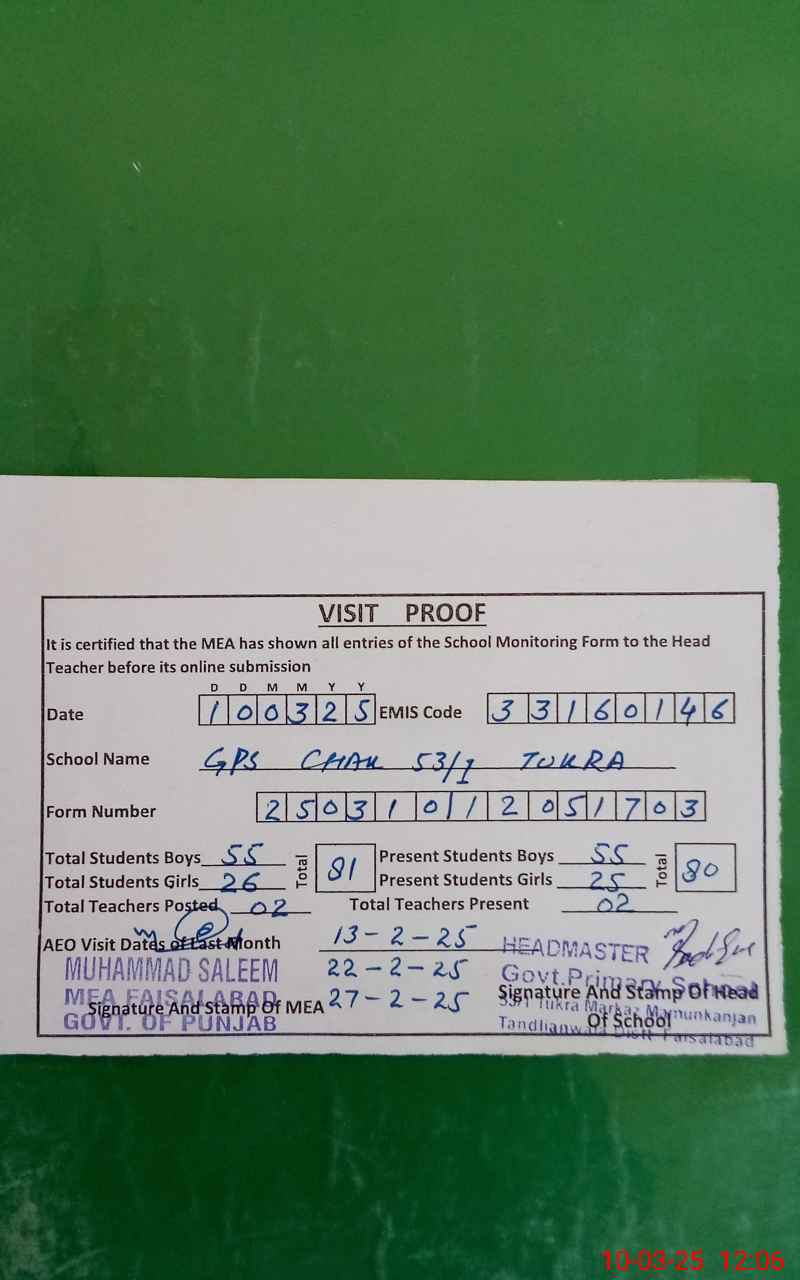 VISIT PROOF
It is certified that the MEA has shown all entries of the School Monitoring Form to the Head
Teacher before its online submission
D D M M Y Y
Date 1 0 0 3 2 5 EMIS Code 3 3 1 6 0 1 4 6
School Name GPS CHAK 53/1 TUKRA
Form Number 2 5 0 3 1 0 1 1 2 0 5 1 7 0 3
Total Students Boys 55 Total 81 Present Students Boys 55 Total 80
Total Students Girls 26 Present Students Girls 25
Total Teachers Posted 02 Total Teachers Present 02
AEO Visit Dates of Last Month 13-2-25
22-2-25
27-2-25
MUHAMMAD SALEEM
MEA FAISALABAD
GOVT. OF PUNJAB
Signature And Stamp Of MEA
HEADMASTER
Govt. Primary School
53/1 Tukra Markaz Mamunkanjan
Tandlianwala Distt Faisalabad
Signature And Stamp Of Head
Of School
10-03-25 12:06